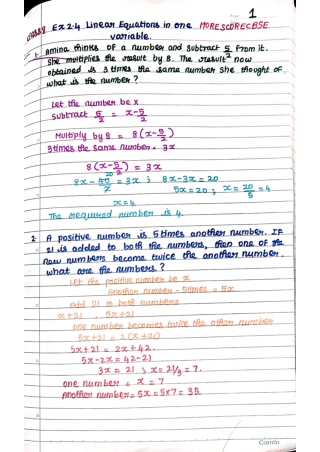 1
CLASS 8 Ex 2.4 Linear Equations in one MORESCORECBSE
variable.
1. Amina thinks of a number and subtract 5/2 from it.
She multiplies the result by 8. The result now
obtained is 3 times the same number she thought of.
what is the number?
Let the number be x
Subtract 5/2 = x-5/2
Multiply by 8 = 8(x-5/2)
3 times the same number = 3x
8(x-5/2) = 3x
8x-40/2 20 = 3x ; 8x-3x=20
5x=20 ; x=20/5=4
x=4
The required number is 4.
2. A positive number is 5 times another number. If
21 is added to both the numbers, then one of the
new numbers become twice the another number.
what are the numbers?
Let the positive number be x
Another number - 5times = 5x
Add 21 to both numbers
x+21 , 5x+21
one number becomes twice the other number
5x+21 = 2(x+21)
5x+21 = 2x+42.
5x-2x = 42-21
3x = 21 ; x=21/3=7.
one number = x = 7
Another number= 5x=5x7=35.